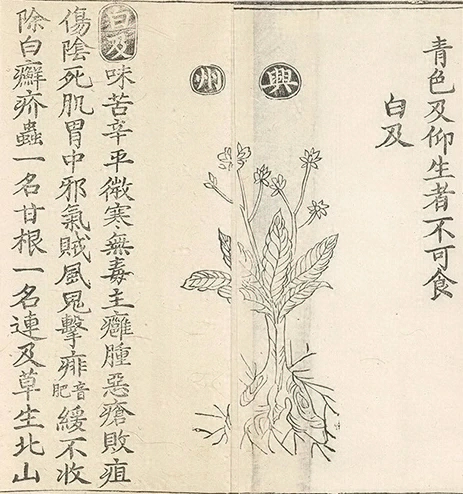 青色及仰生者不可食
白及
興州
白及味苦辛平微寒無毒主癰腫惡瘡敗疽
傷陰死肌胃中邪氣賊風鬼擊痱音肥緩不收
除白癬疥蟲一名甘根一名連及草生北山